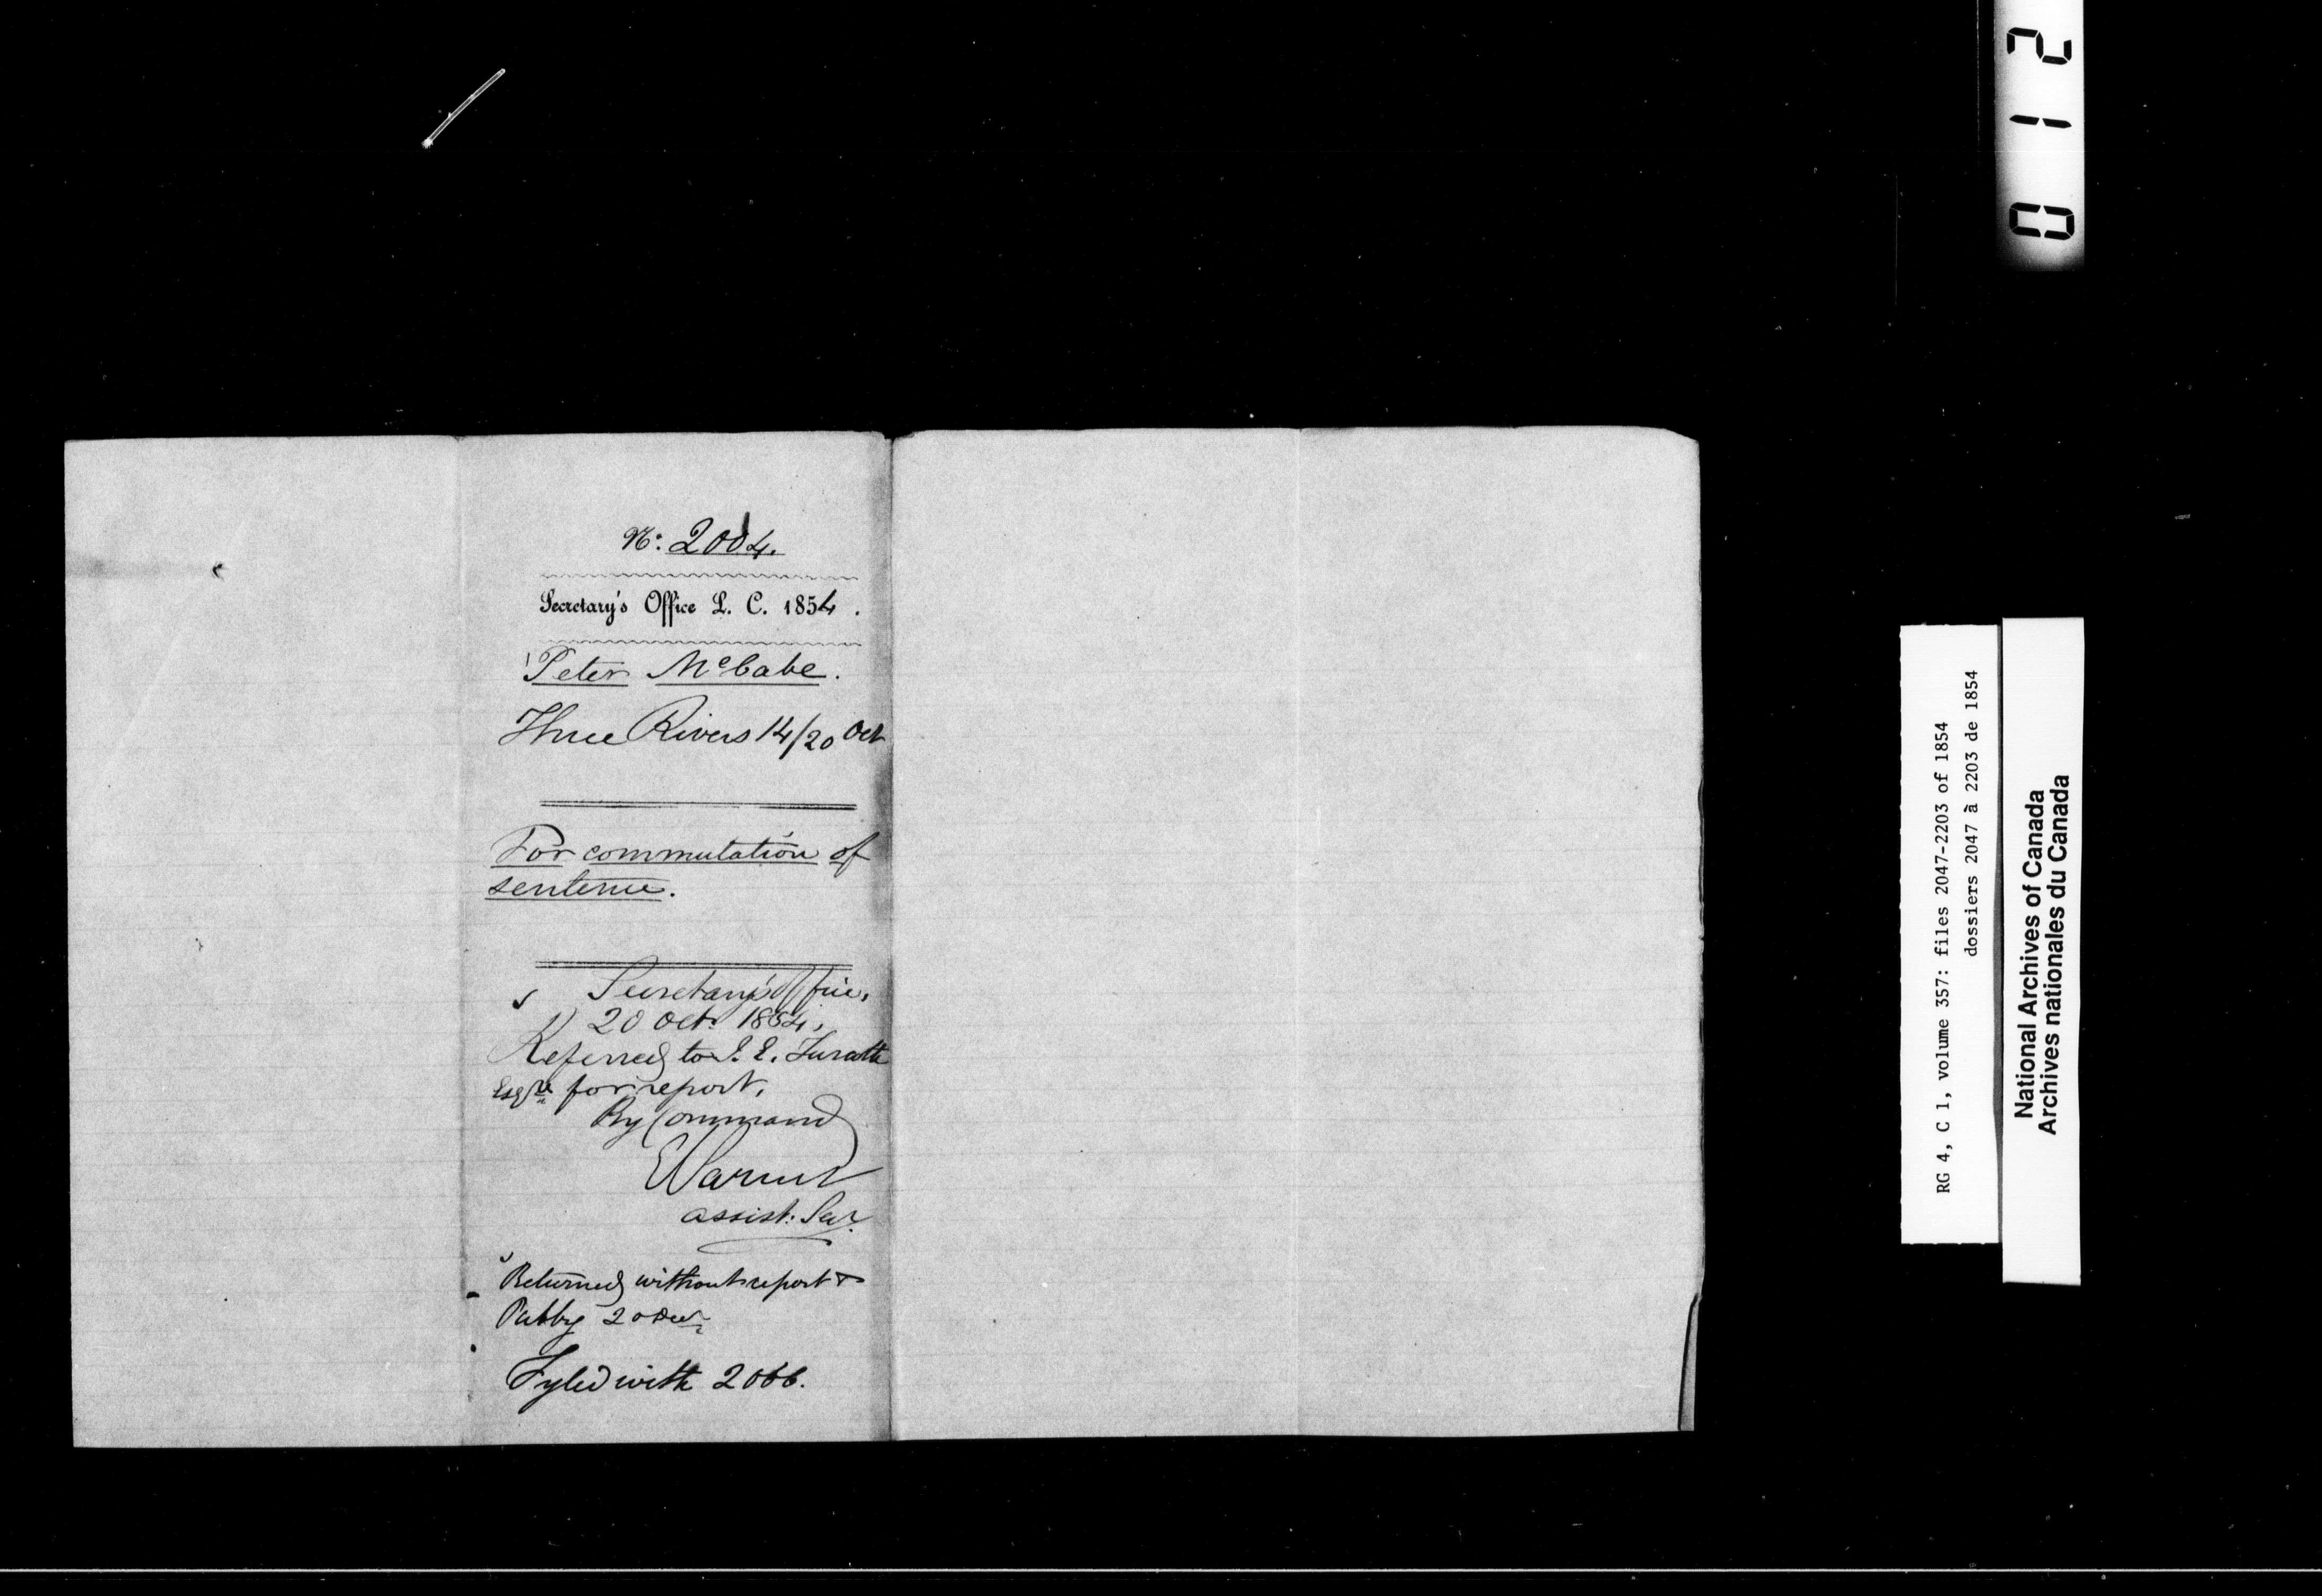 No: 2004.
Secretary's Office L. C. 1854.
Peter McCabe.
Three Rivers 14/20 Oct
For commutation of
sentence.
Secretary's Office,
20 Oct. 1854,
Referred to
Esqre for report,
By Command
assist. Secy.
Returned without report &
20 Decr
Fyled with 2066.
012
RG 4, C 1, volume 357: files 2047-2203 of 1854
dossiers 2047 à 2203 de 1854
National Archives of Canada
Archives nationales du Canada